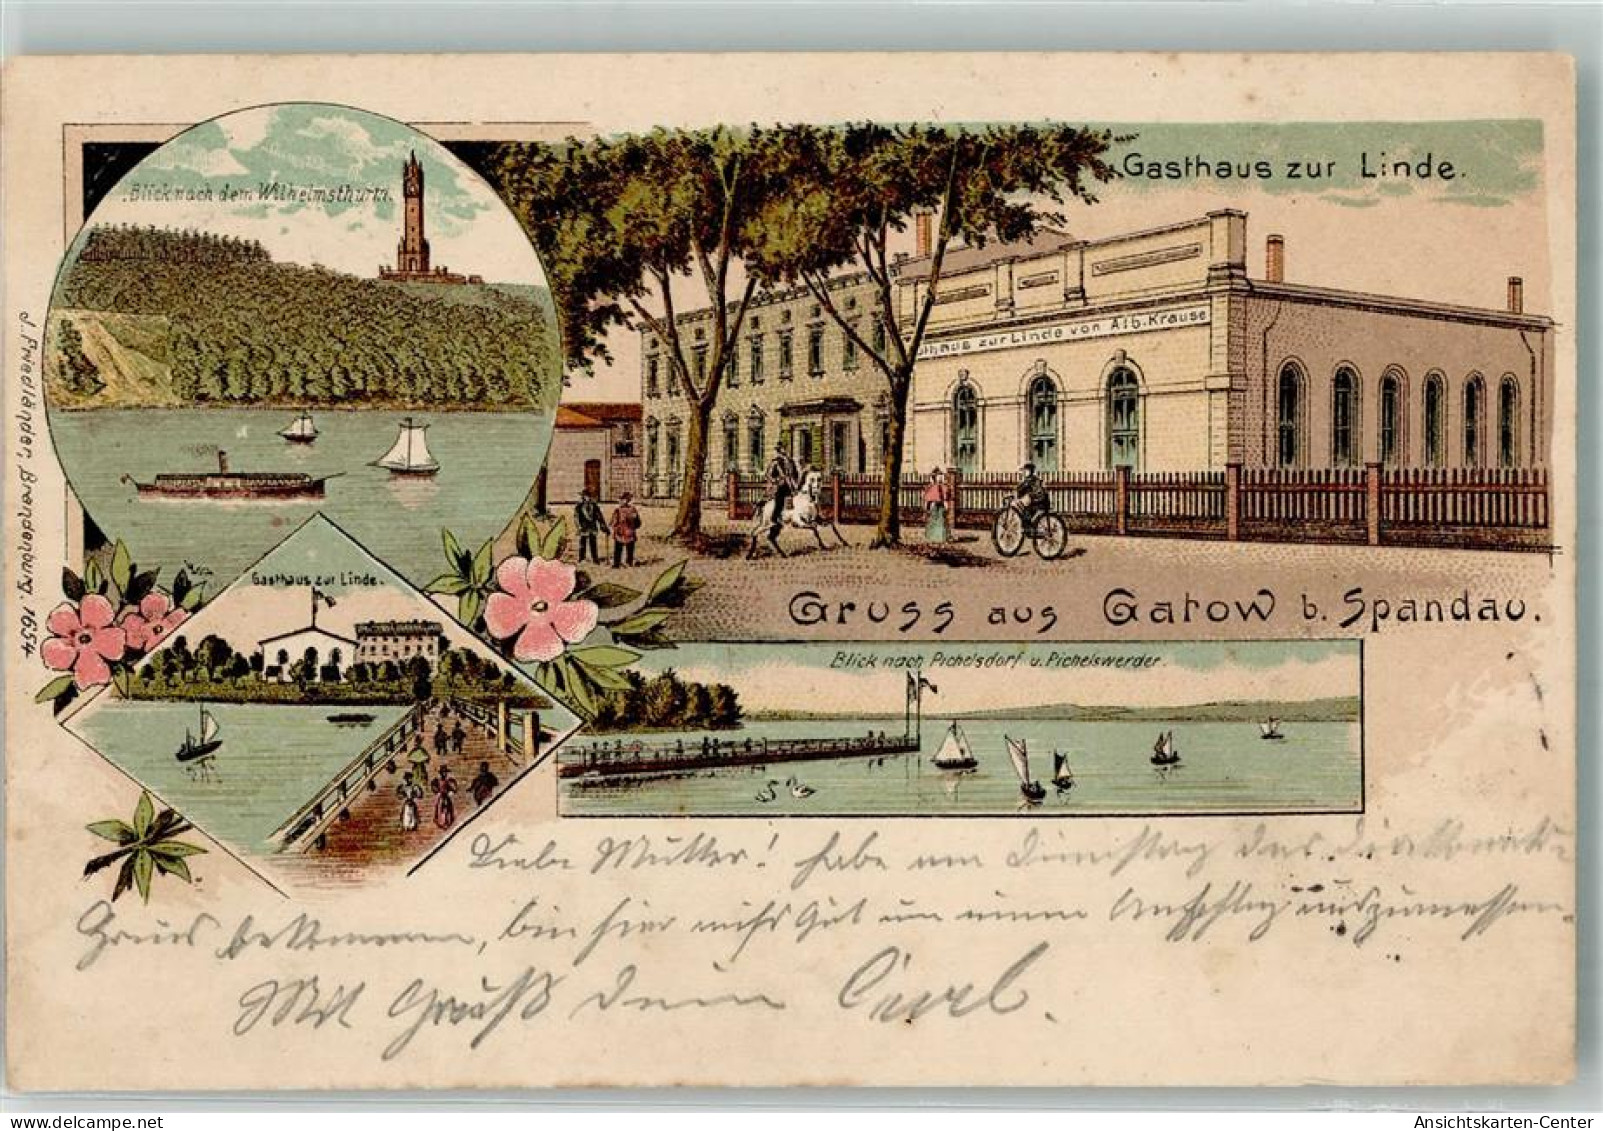 Blick nach dem Wilhelmsthurm.
Gasthaus zur Linde.
Gasthaus zur Linde von Alb. Krause
J. Friedländer, Brandenburg, 1654
Gasthaus zur Linde.
Gruss aus Gatow b. Spandau.
Blick nach Pichelsdorf u. Pichelswerder.
Liebe Mutter! habe am Dienstag das
bekommen, bin hier aufs Gut um einen auszumessen.
Mit Gruß Dein Carl.
Ansichtskarten-Center